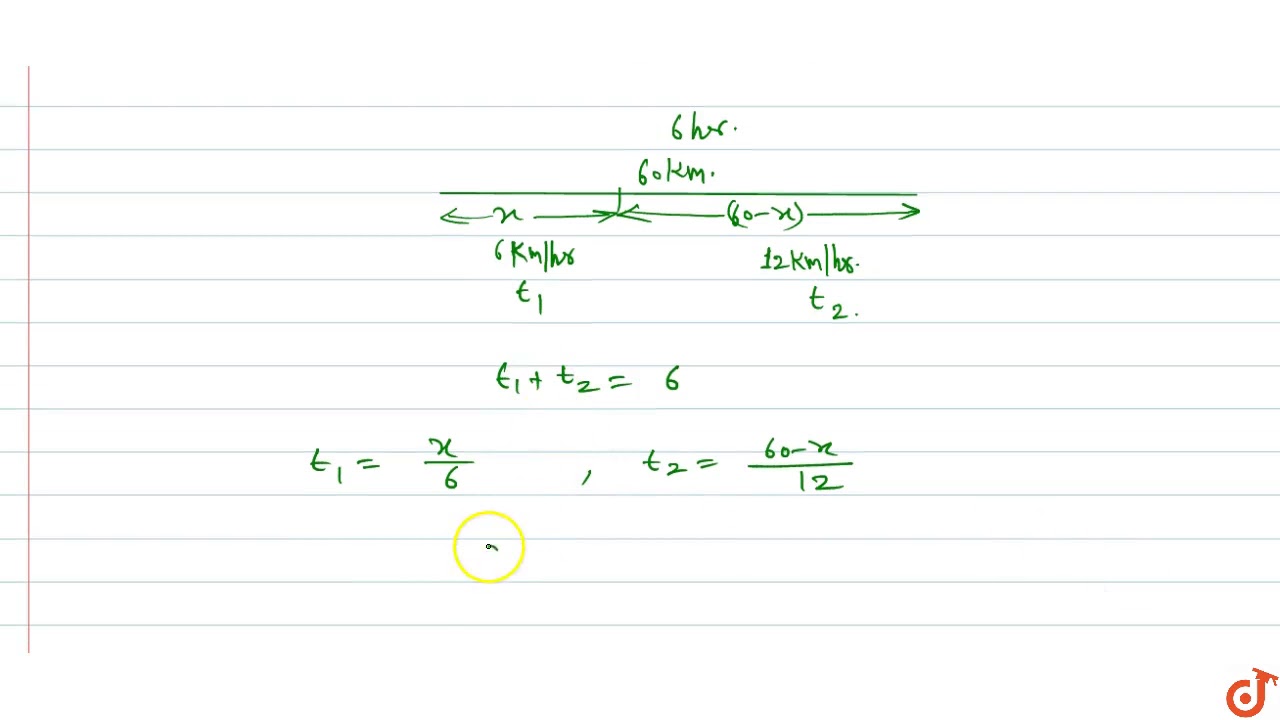 6 hr.
60 Km.
x (60-x)
6 Km/hr 12 Km/hr.
t1 t2.
t1 + t2 = 6
t1 = x/6 , t2 = 60-x/12